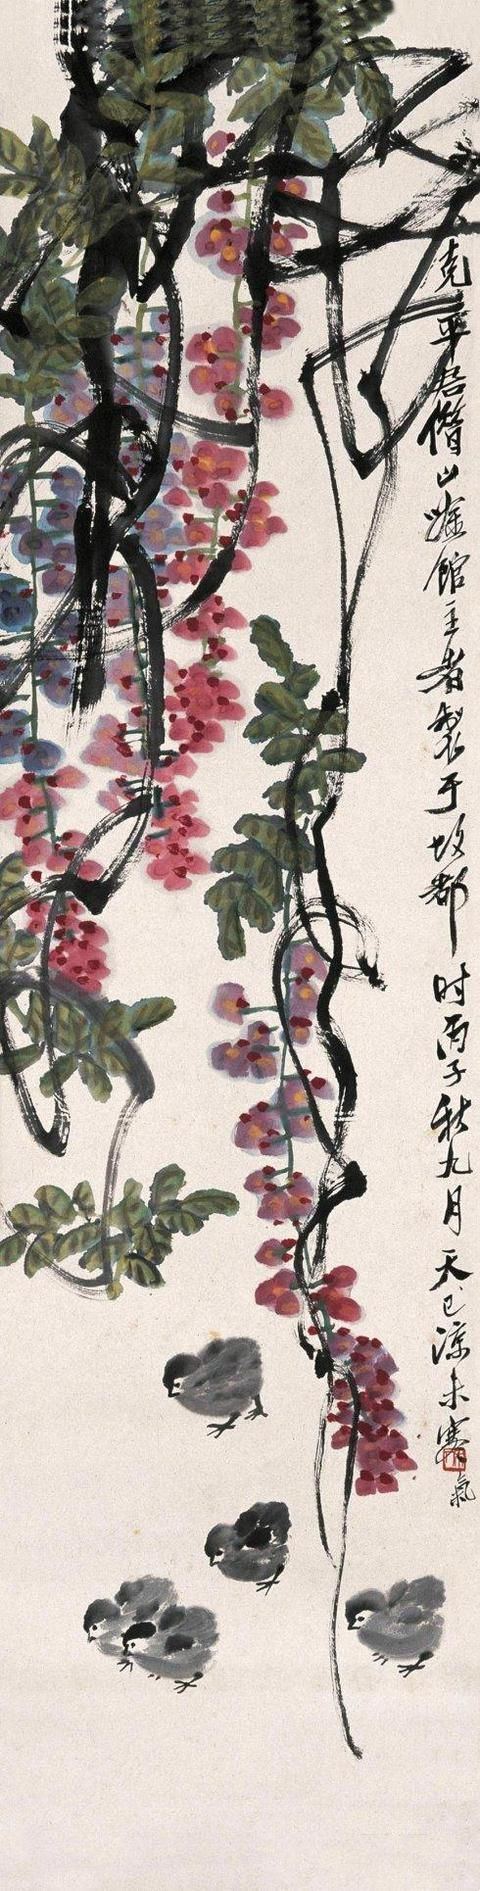 克平君借山唫館主者製于故都時丙子秋九月天已涼未寒氣